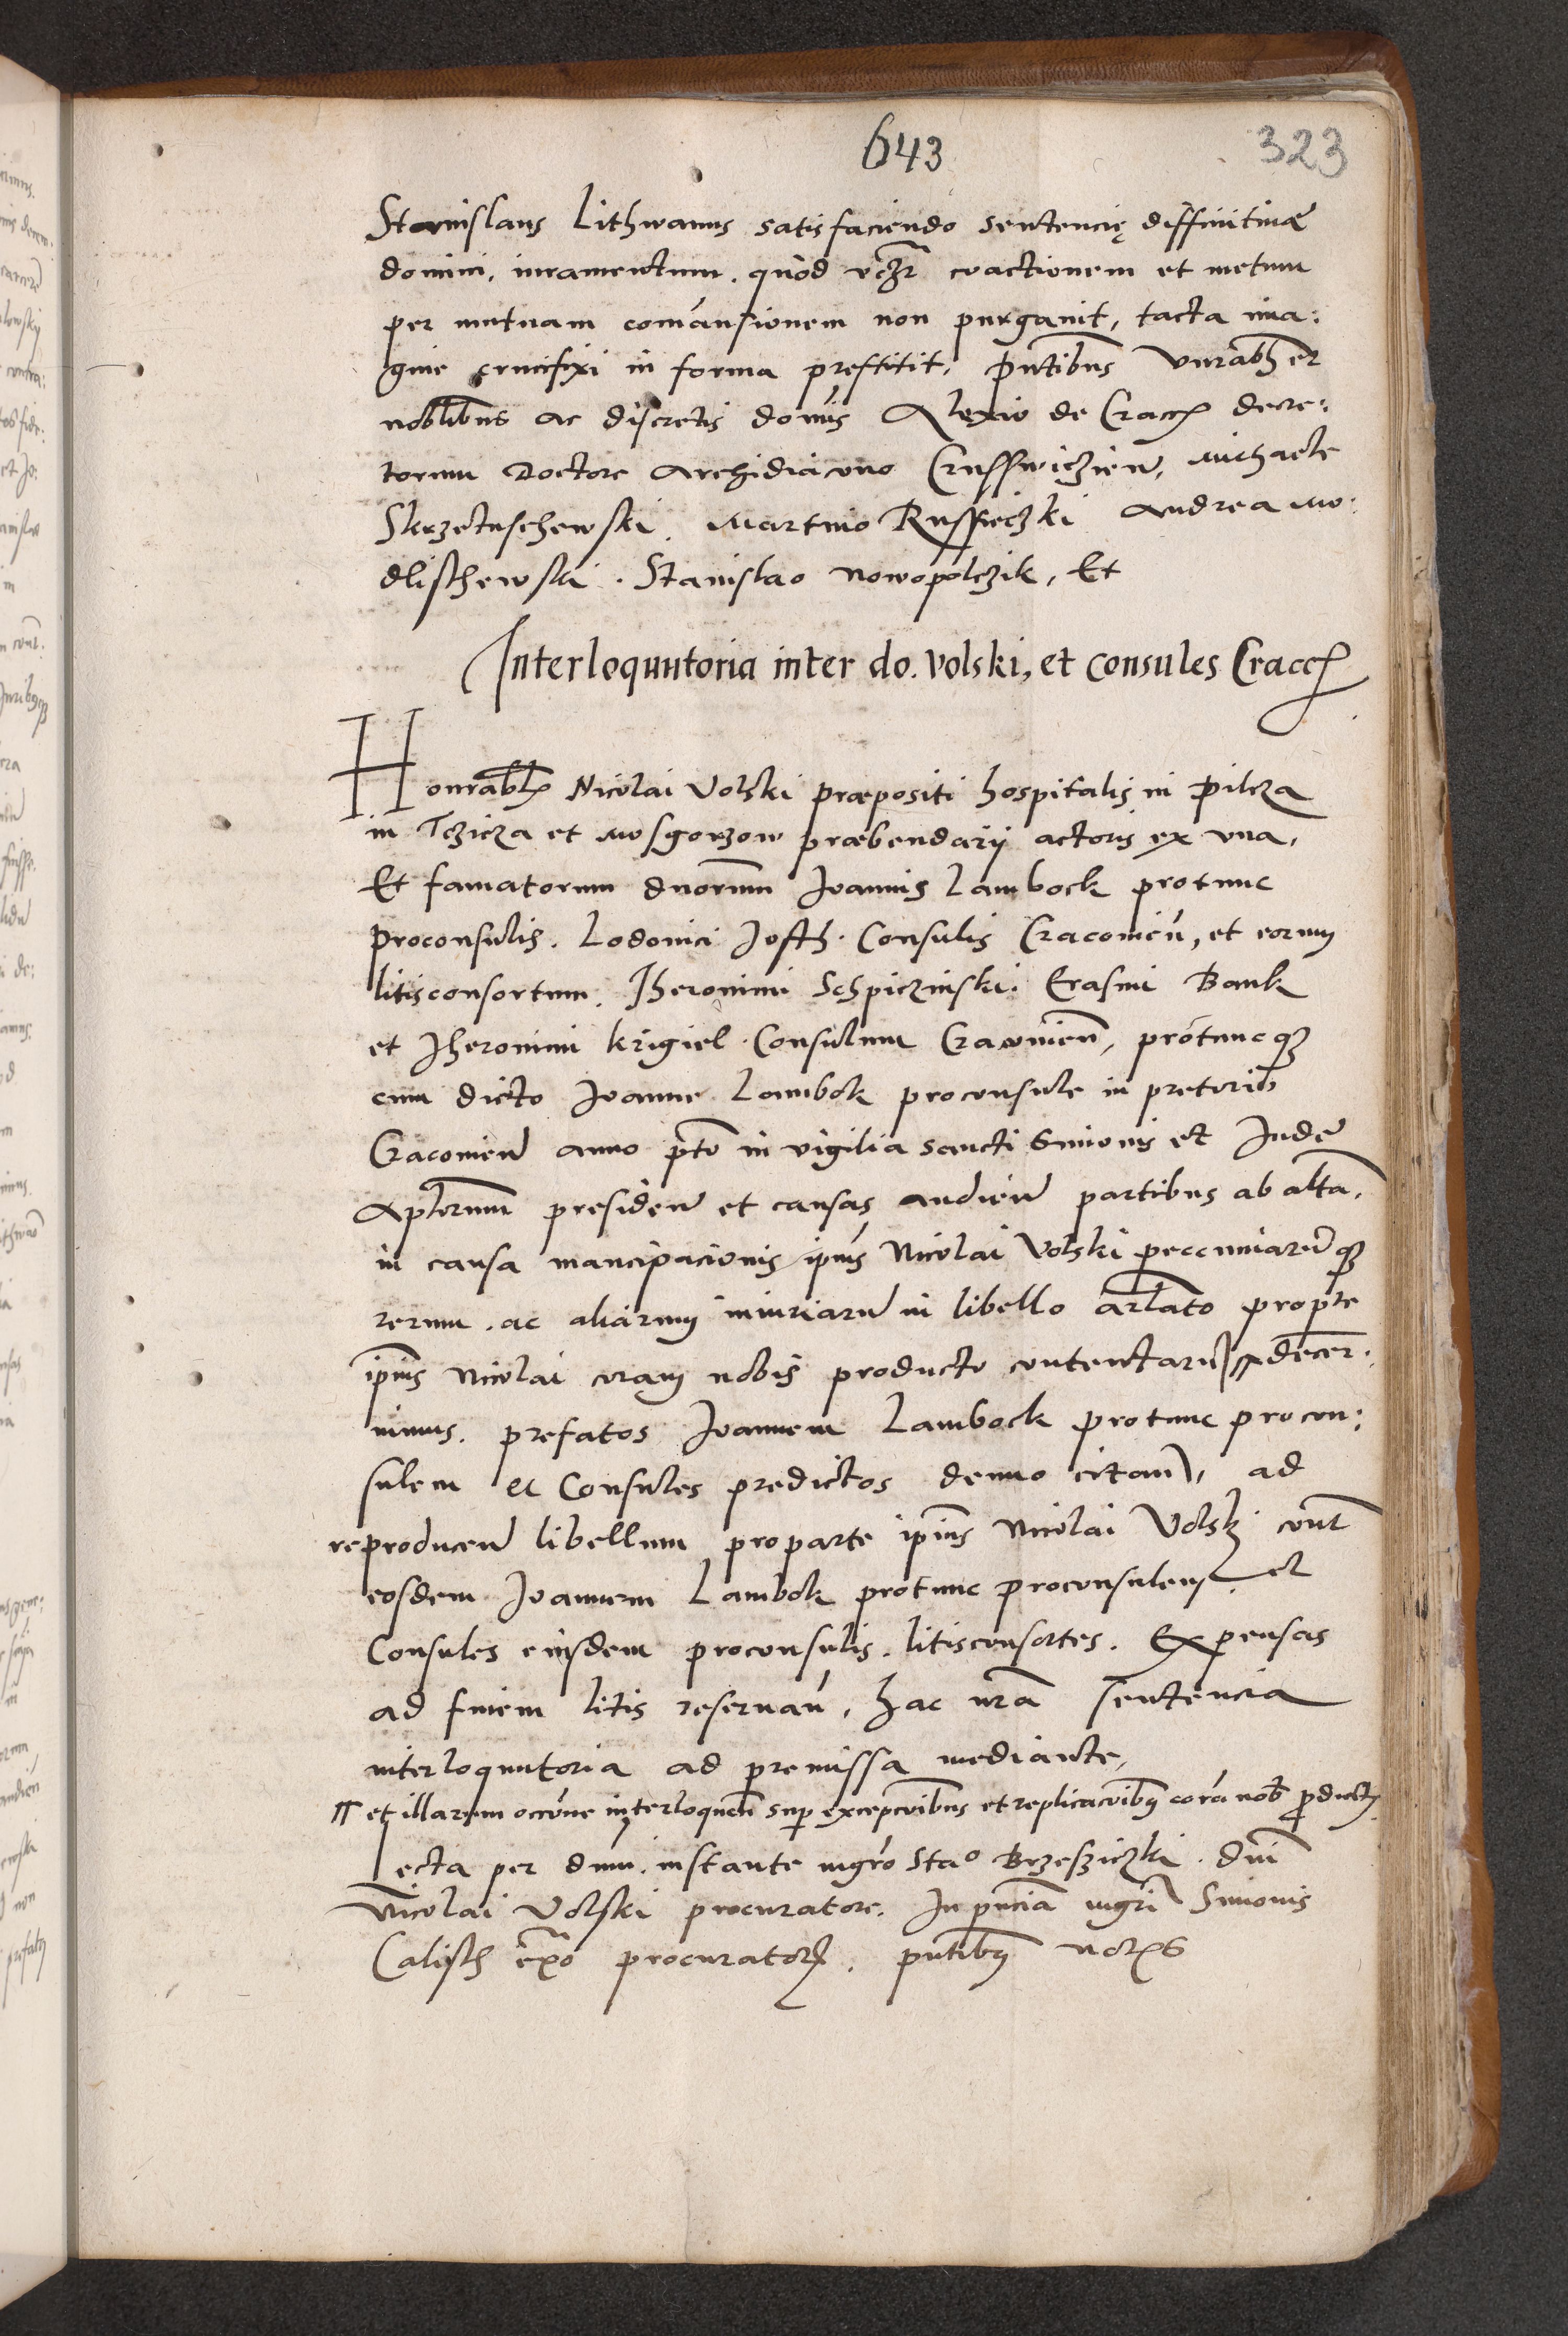 643
323
Stanislaus Lithwanus satisfaciendo sentencię diffinitiuæ
domini, iuramentum, quod coactionem et metum
per mutuam comansionem non purgauit, tacta ima:
gine crucifixi in forma prestitit, Pntibus Vnrabl et
noblibus ac discretis domis Alexio de Cracch decre:
torum Doctore Archidiacono Crusswiczien, Michaele
Skrzetuschewski, Martino Russieczki Andrea Mo:
dlischewski. Stanislao Nowopolczik, Et
Interloquutoria inter do. Volski, et Consules Cracch
Honrabl Nicolai Volski præpositi hospitalis in Pilcza
in Tczicza et Mosgorzow præbendarij actoris ex vna,
Et famatorum dnorum Ioannis Lambock protunc
Proconsulis. Lodouici Josth. Consulis Cracouien, et eorum
litisconsortum. Jheronimi Schpiczinski. Erasmi Bank
et Jheronimi Krigiel. Consulum Cracouien, protuncq
cum dicto Joanne Lambok proconsule in pretorio
Cracouien anno pto in vigilia sancti Simonis et Jude
Aplorum presiden et causas audien partibus ab alta,
in causa mancipacionis ipius Nicolai Volski peccuniaruq
rerum. ac aliarum iniuriaru in libello arlato pro pte
ipius Nicolai coram nobis producto contentaru decer:
nimus. prefatos Joannem Lambock protunc procon:
sulem et Consules predictos denuo citan, ad
reproducen libellum pro parte ipius Nicolai Volsk cont
eosdem Joannem Lambok protunc proconsulem et
Consules eiusdem proconsulis. litisconsortes. Expensas
ad finem litis reseruan, hac nra sentencia
interloquutoria ad premissa mediante,
et illarum occone interloquen sup excepcoibus et replicacoibus cora nob producty
Lecta per dnm. instante mgro Stao Brzesziczki. dni
Nicolai Volski procuratore. In pncia mgri Simonis
Calisch exo procuratore, pntibus